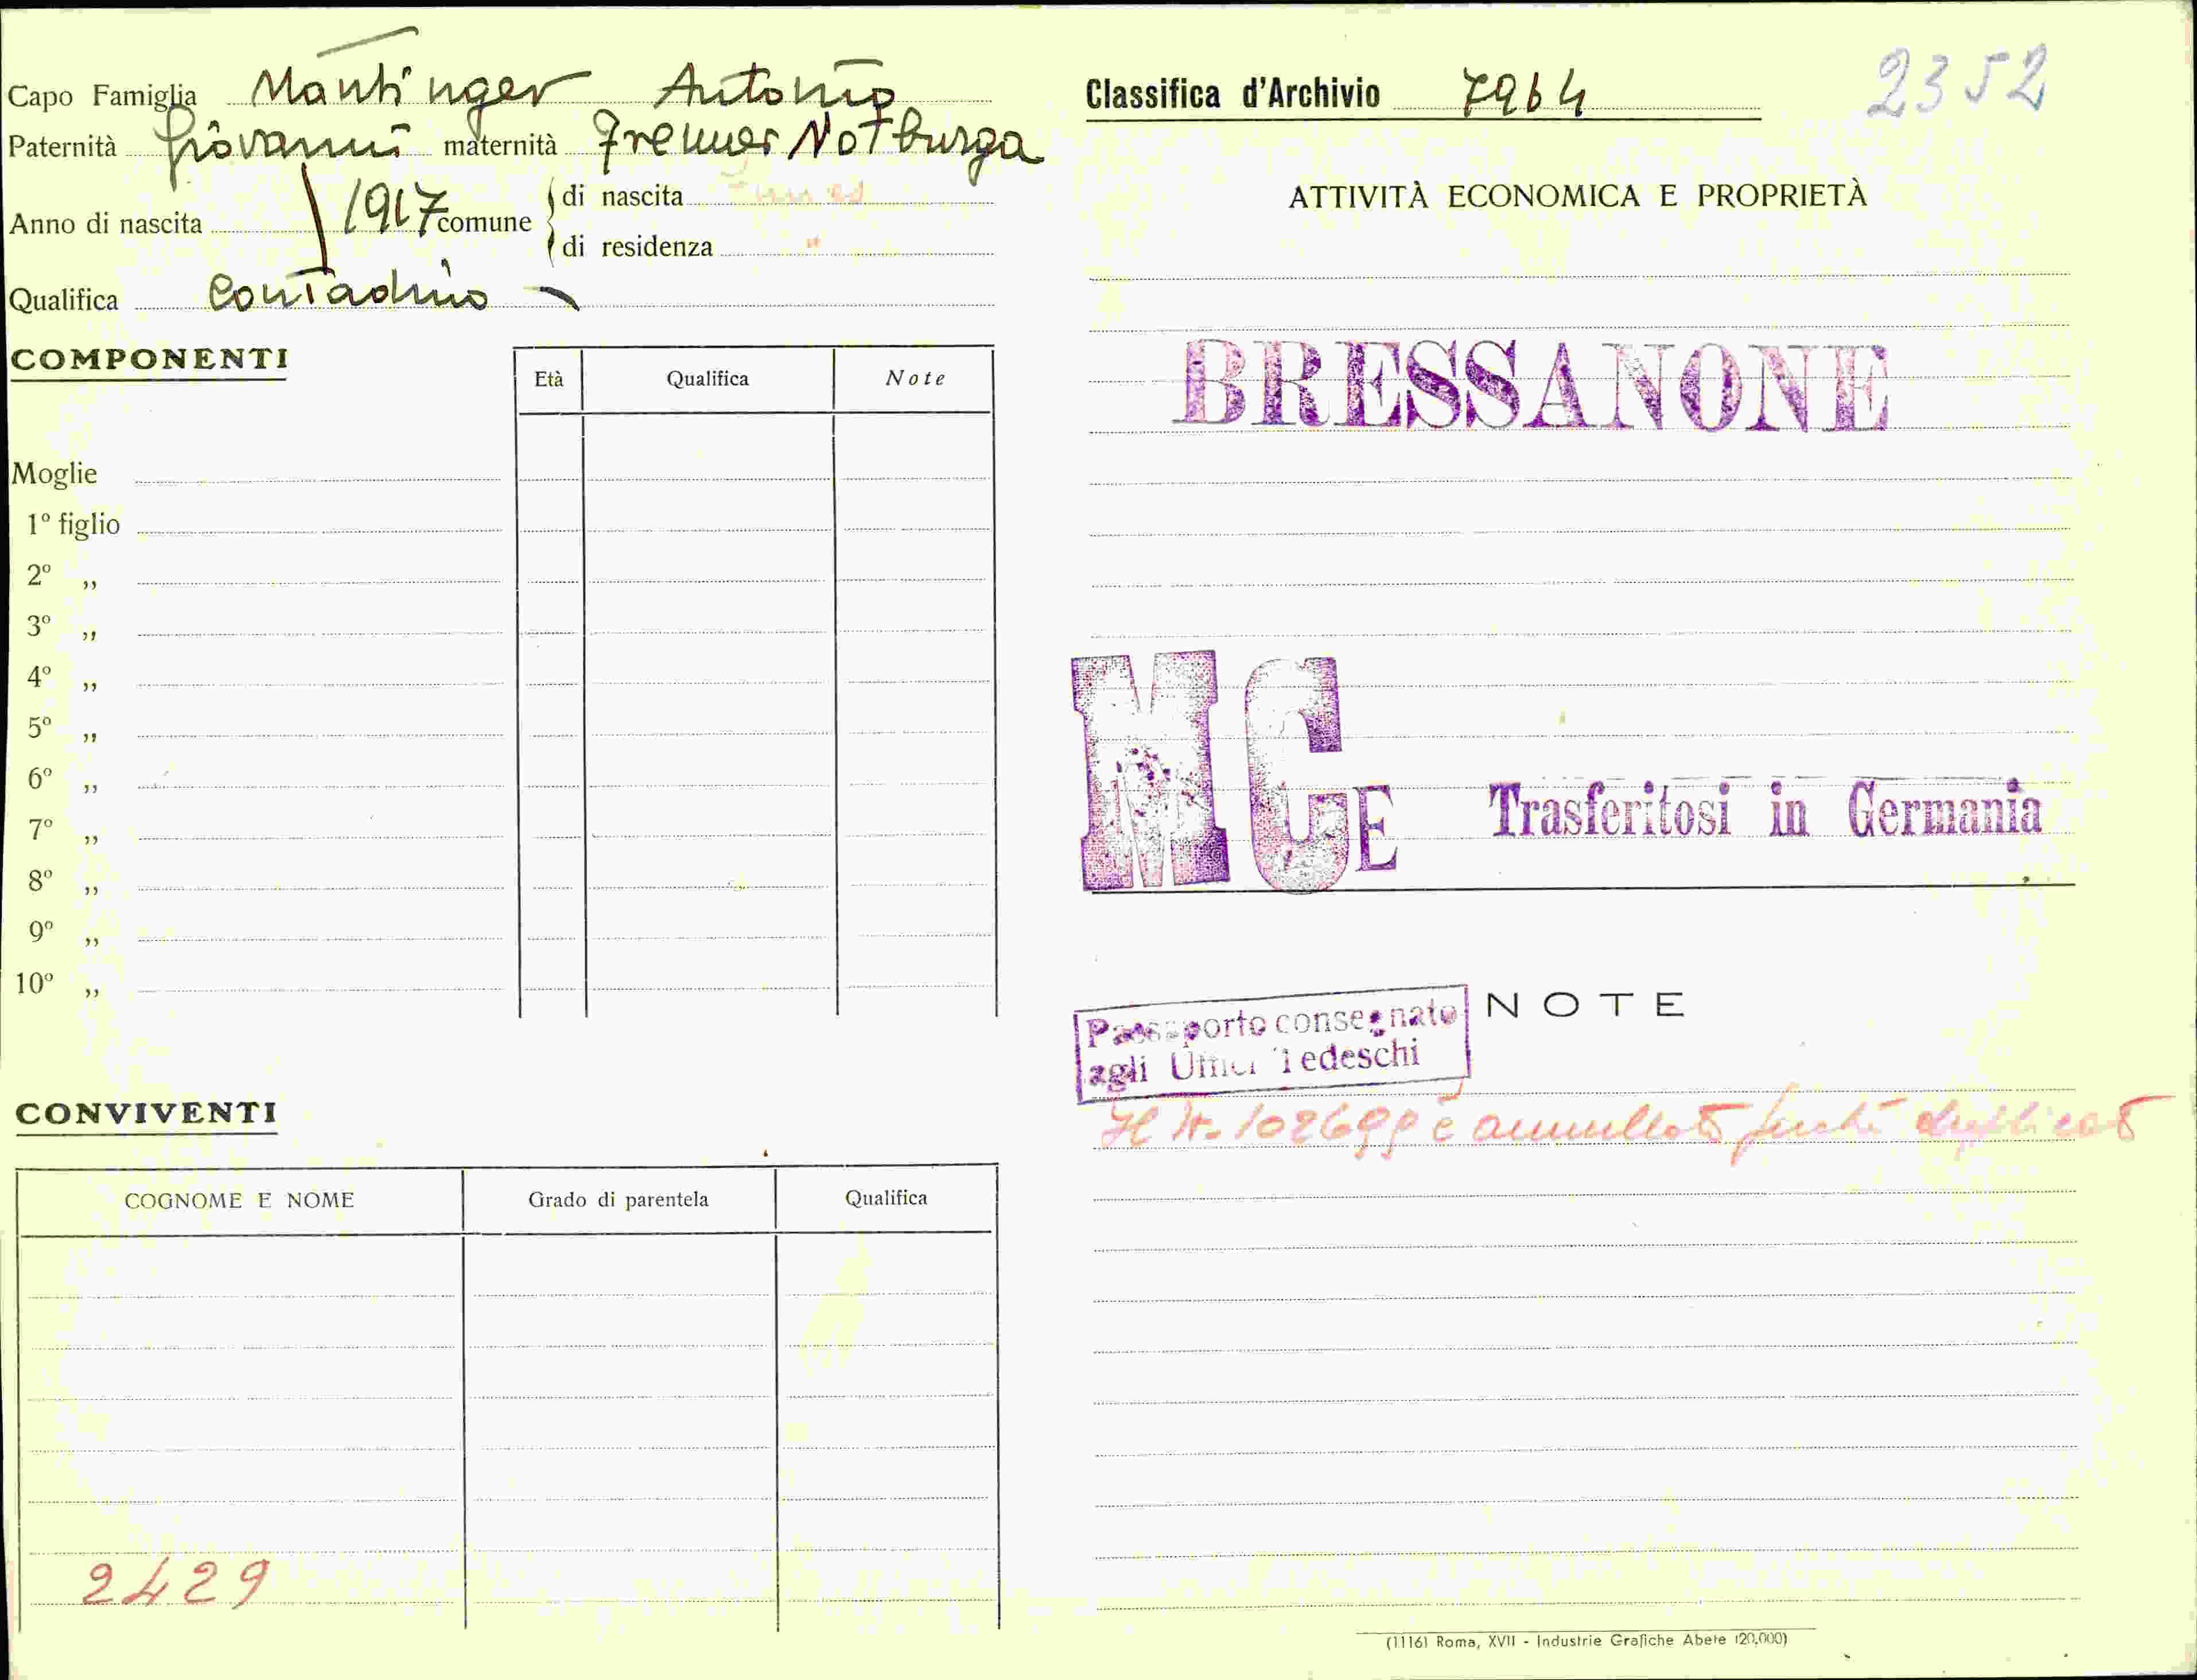 Capo Famiglia Mantinger Antonio
Paternità Giovanni maternità Notburga
Anno di nascita 1917 comune di nascita
di residenza
Qualifica Contadino
COMPONENTI
Età Qualifica Note
Moglie
1º figlio
2º „
3º „
4º „
5º „
6º „
7º „
8º „
9º „
10º „
CONVIVENTI
COGNOME E NOME Grado di parentela Qualifica
2429
Classifica d'Archivio 7964
2352
ATTIVITÀ ECONOMICA E PROPRIETÀ
BRESSANONE
MGE Trasferitosi in Germania
NOTE
Passaporto consegnato
agli Uffici Tedeschi
Il N. 102699 è annullato perché duplicato
(1116) Roma, XVII - Industrie Grafiche Abete (20,000)